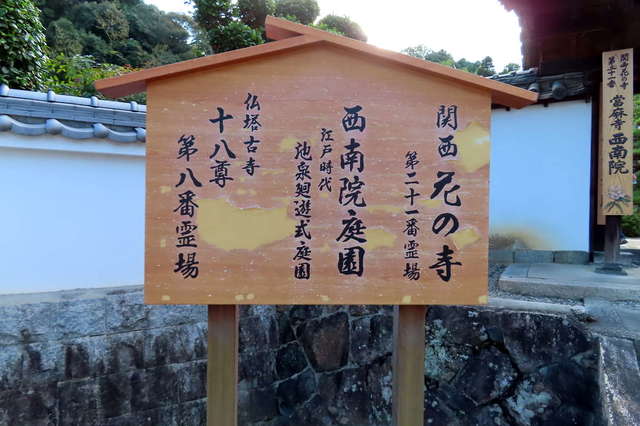 関西花の寺
第二十一番霊場
西南院庭園
江戸時代
池泉廻遊式庭園
仏塔古寺
十八尊
第八番霊場
関西花の寺
第二十一番
當麻寺西南院